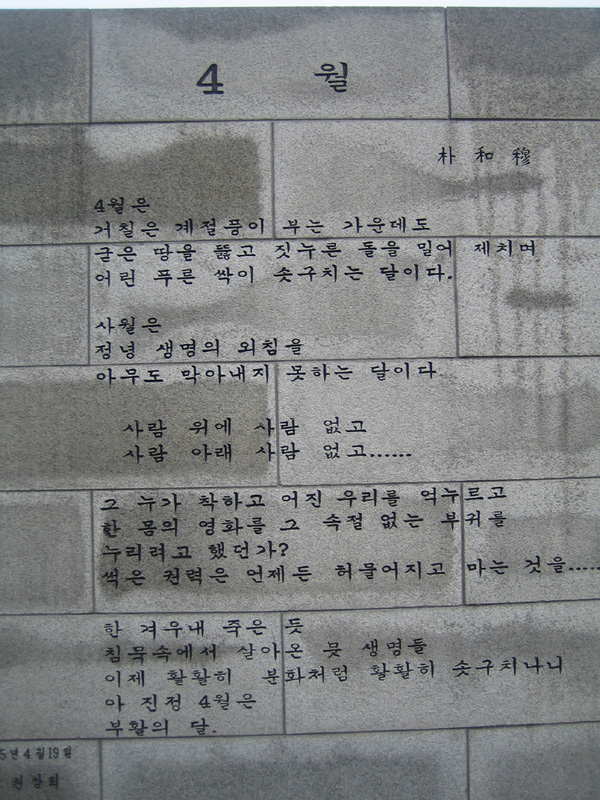 4 월
朴 和 穆
4월은
거칠은 계절풍이 부는 가운데도
굳은 땅을 뚫고 짓누른 돌을 밀어 제치며
어린 푸른 싹이 솟구치는 달이다.
사월은
정녕 생명의 외침을
아무도 막아내지 못하는 달이다
사람 위에 사람 없고
사람 아래 사람 없고......
그 누가 착하고 어진 우리를 억누르고
한 몸의 영화를 그 속절 없는 부귀를
누리려고 했던가?
썩은 권력은 언제든 허물어지고 마는 것을.....
한 겨우내 죽은 듯
침묵속에서 살아온 뭇 생명들
이제 활활히 분화처럼 활활히 솟구치나니
아 진정 4월은
부활의 달.
5년 4월 19일